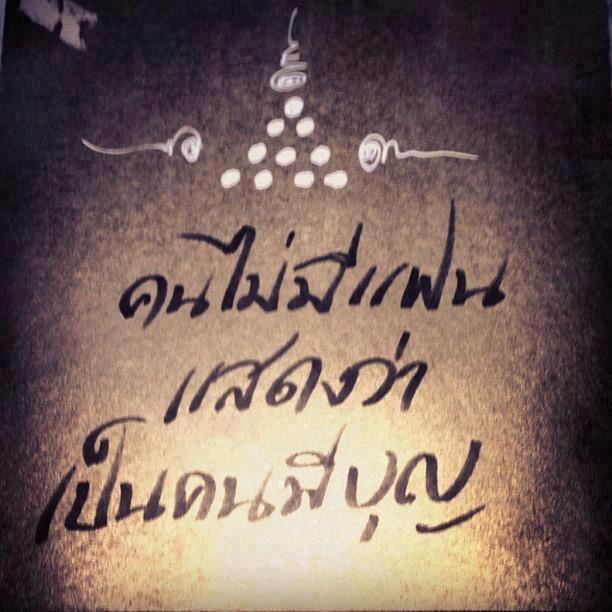 คนไม่มีแฟน
แสดงว่า
เป็นคนมีบุญ